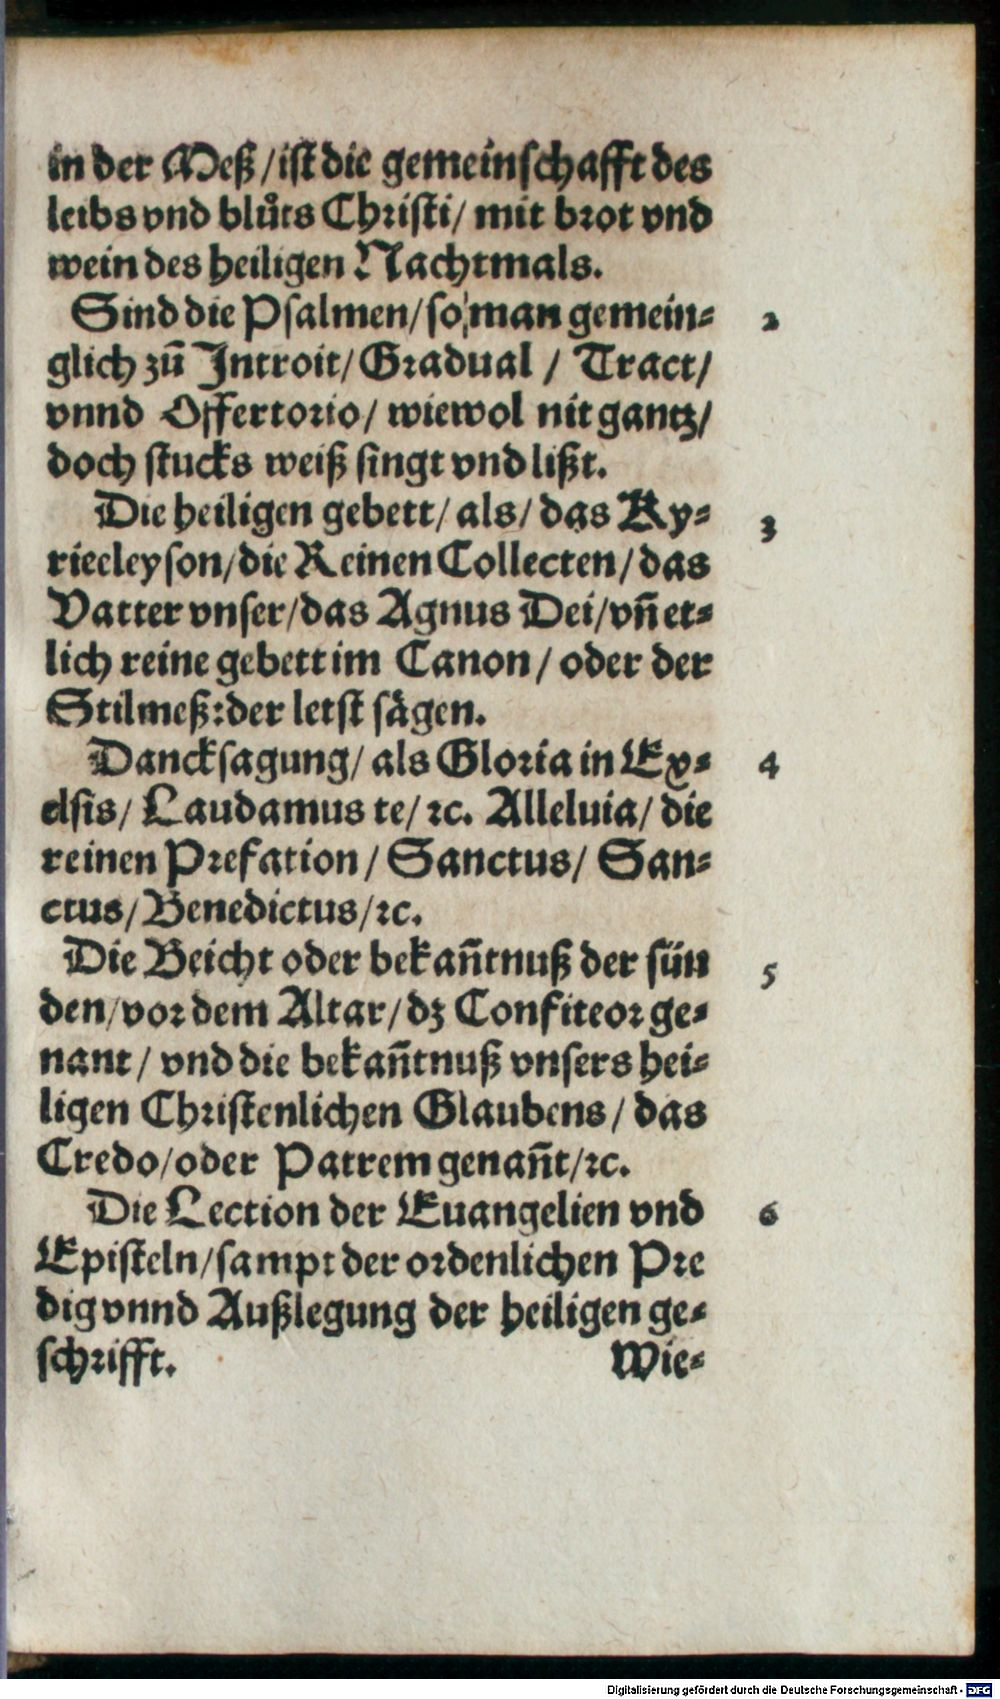 in der Meß/ist die gemeinschafft des
leibs vnd blůts Christi/ mit brot vnd
wein des heiligen Nachtmals.
Sind die Psalmen/so man gemein-
glich zū Introit/ Gradual / Tract/
vnnd Offertorio/ wiewol nit gantz/
doch stucks weiß singt vnd lißt.
Die heiligen gebett/ als/ das Ky-
rieeleyson/die Reinen Collecten/das
Vatter vnser/das Agnus Dei/vñ et-
lich reine gebett im Canon/ oder der
Stilmeß:der letst sägen.
Dancksagung/ als Gloria in Ex-
elsis/ Laudamus te/ ꝛc. Alleluia/ die
reinen Prefation/ Sanctus/ San-
ctus/ Benedictus/ꝛc.
Die Beicht oder bekañtnuß der sün
den/vor dem Altar/dz Confiteor ge-
nant/ vnd die bekañtnuß vnsers hei-
ligen Christenlichen Glaubens/ das
Credo/oder Patrem genañt/ꝛc.
Die Lection der Euangelien vnd
Episteln/sampt der ordenlichen Pre
dig vnnd Außlegung der heiligen ge-
schrifft. Wie-
2
3
4
5
6
Digitalisierung gefördert durch die Deutsche Forschungsgemeinschaft - DFG